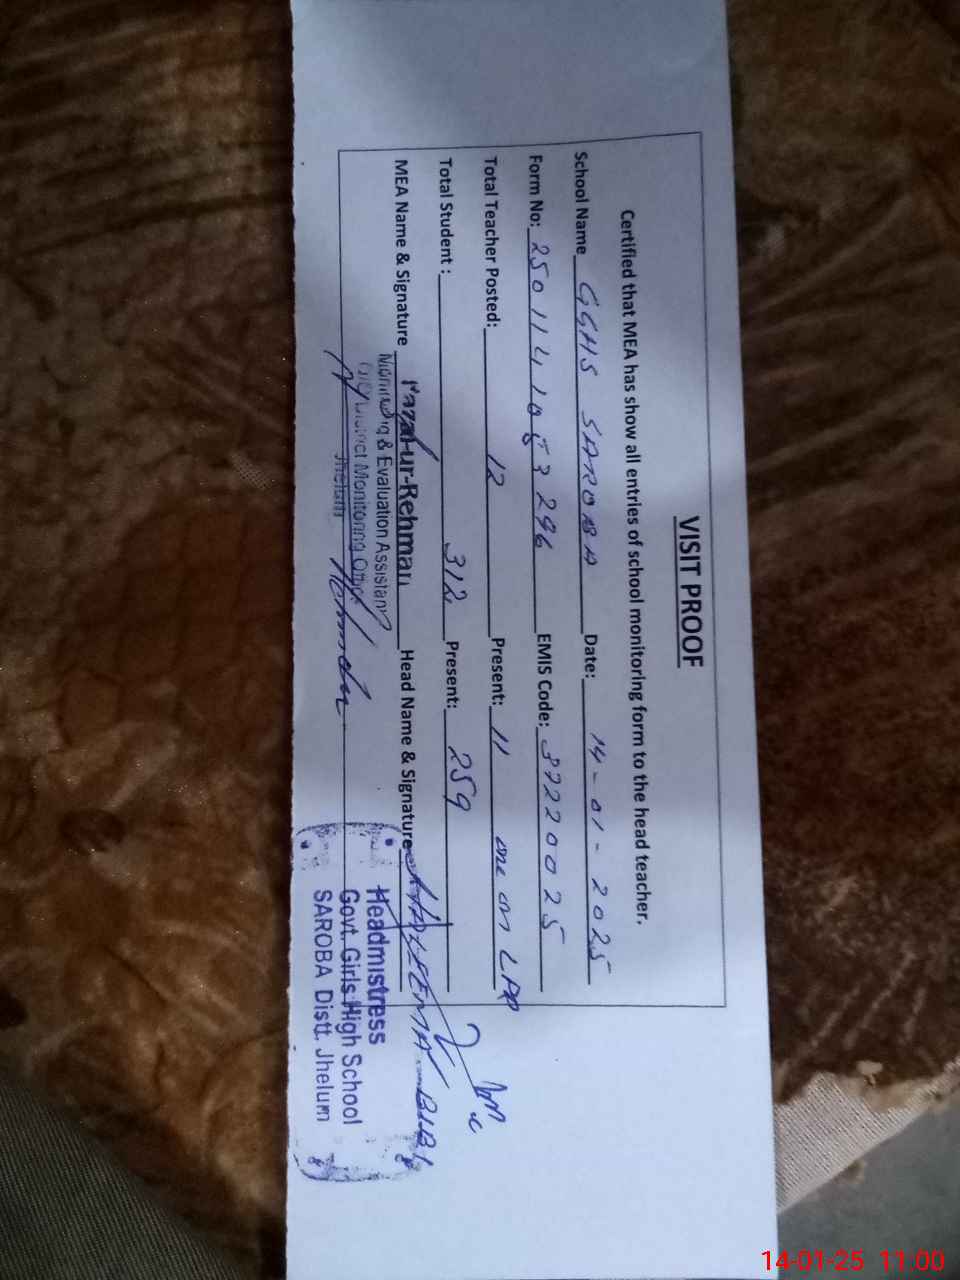 VISIT PROOF
Certified that MEA has show all entries of school monitoring form to the head teacher.
School Name GGHS SAROBA Date: 14-01-2025
Form No: EMIS Code: 37220025
Total Teacher Posted: 12 Present: 11 one on LPR
Total Student : 312 Present: 259
MEA Name & Signature Fazal-ur-Rehman Head Name & Signature HALEEMA BIBI
Monitoring & Evaluation Assistant
District Monitoring Office
Jhelum
Headmistress
Govt. Girls High School
SAROBA Distt. Jhelum
14-01-25 11:00